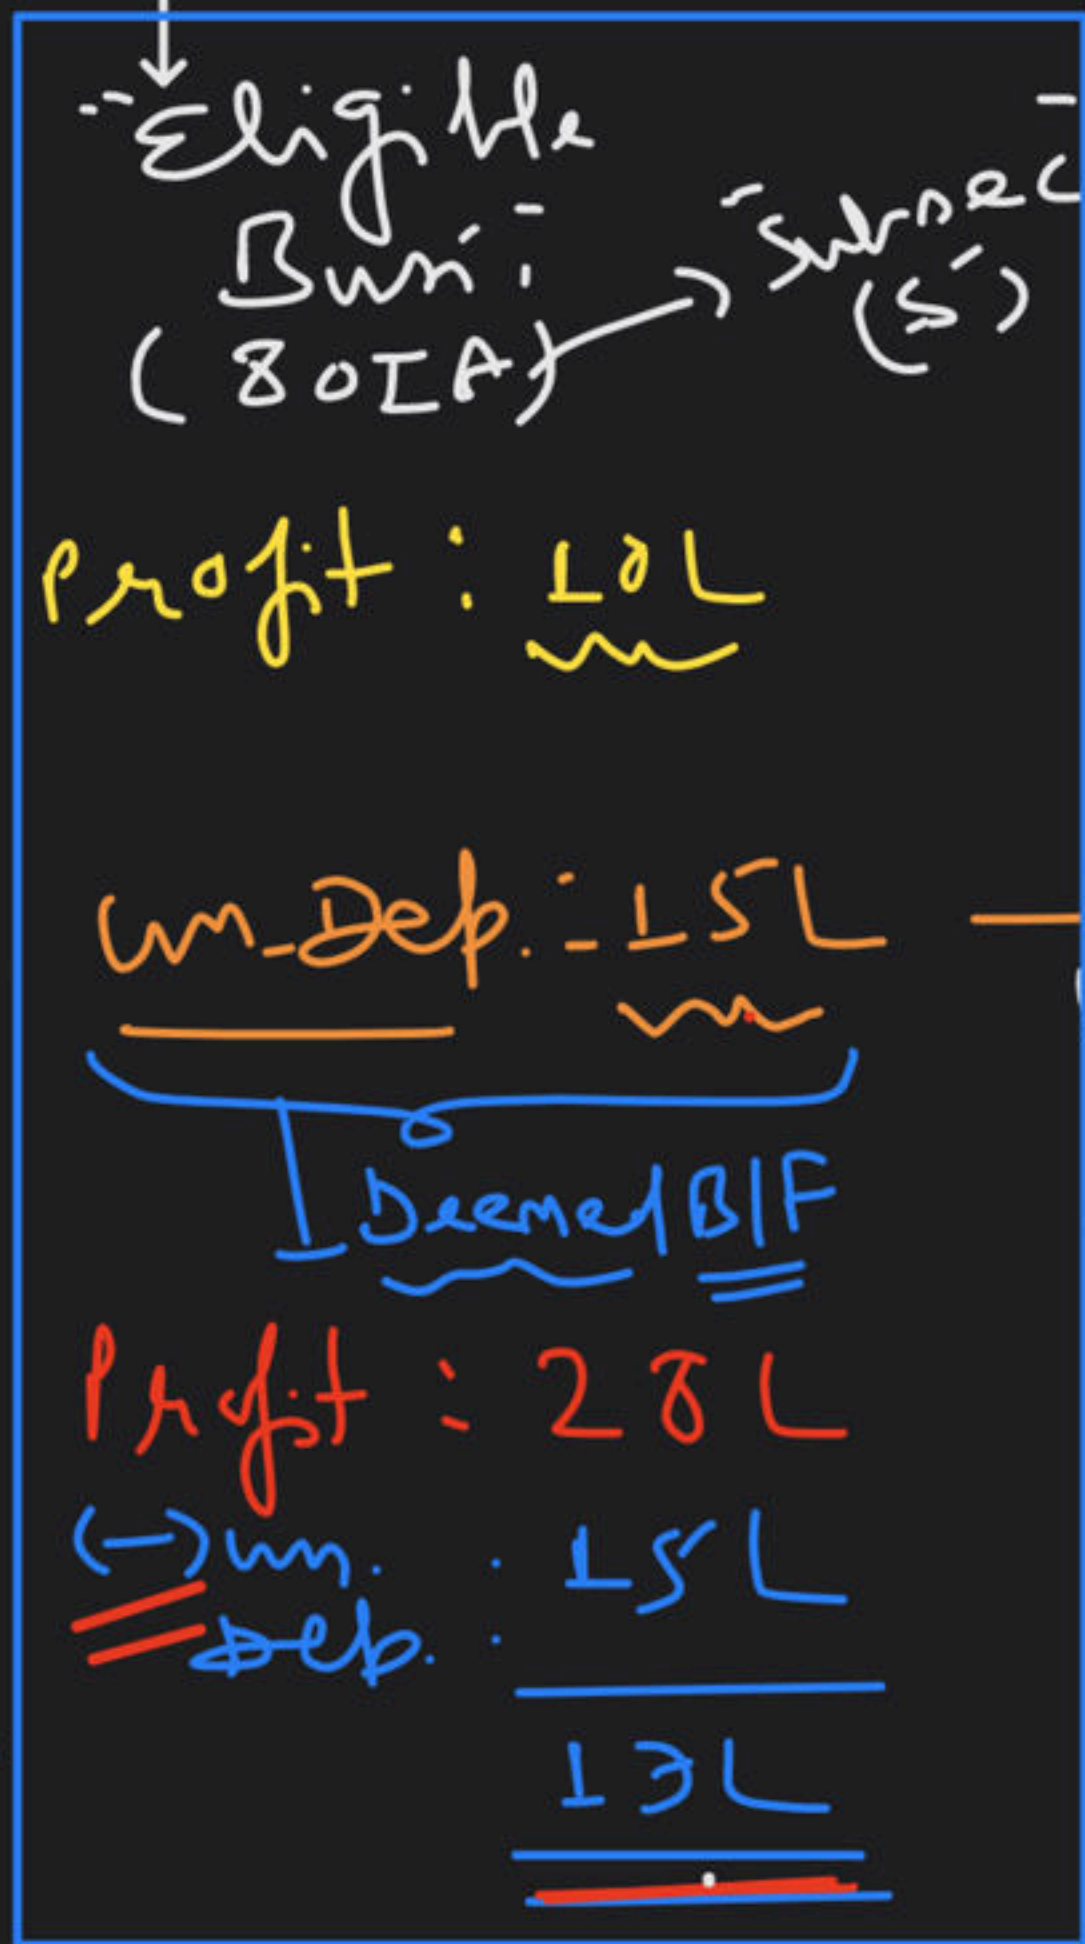 "Eligible
Busi:
(80IA)
"Subsec
(5)
Profit: 10L
Un-Dep. :- 15L
Deemed B/F
Profit : 28L
(-) un. : 15L
Dep.
13L